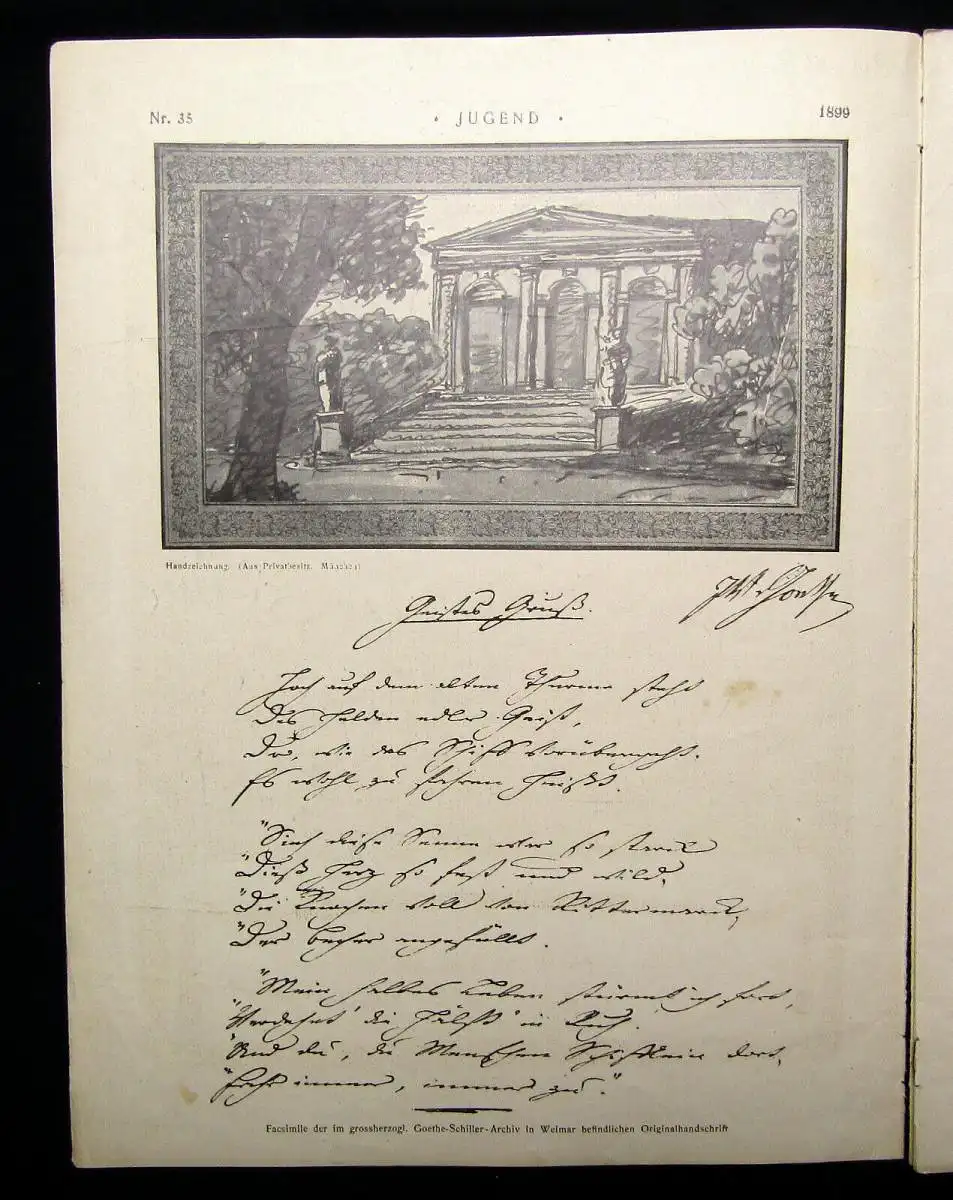 Nr. 35
· JUGEND ·
1899
Handzeichnung. (Aus Privatbesitz. München)
JWvGoethe
Geistes Gruß.
Hoch auf dem alten Thurme steht
Des Helden edler Geist,
Der, wie das Schiff vorübergeht.
Es wohl zu fahren heißt.
"Sieh diese Senne war so starck
"Dieß Herz so fest und wild,
"Die Knochen voll von Rittermarck,
"Der Becher angefüllt.
"Mein halbes Leben stürmt' ich fort,
"Verdehnt' die Hälft' in Ruh.
"Und du, du Menschen Schifflein dort,
"Fahr immer, immer zu."
Facsimile der im grossherzogl. Goethe-Schiller-Archiv in Weimar befindlichen Originalhandschrift